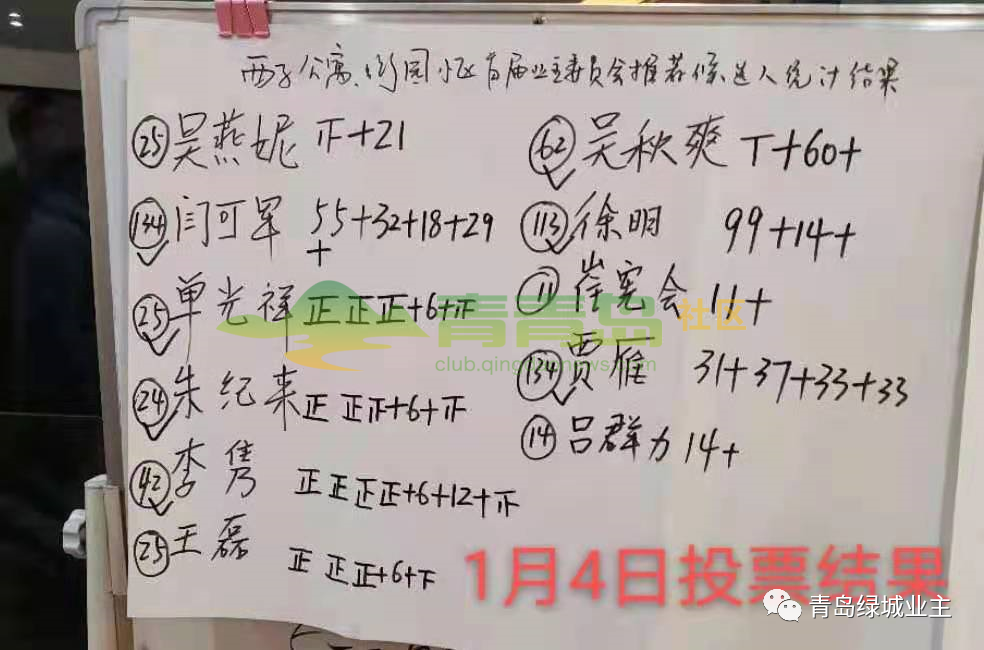 西子公寓、御园小区首届业主委员会推荐候选人统计结果
25 吴燕妮 正+21
134 闫可军 55+32+18+29
+
25 单光祥 正正正+6+正
24 朱纪来 正正正+6+正
42 李隽 正正正正+6+12+正
25 王磊 正正正+6+下
62 吴秋爽 T+60+
113 徐明 99+14+
11 崔宪会 11+
134 贾雁 31+37+33+33
14 吕群力 14+
青青岛社区
club.qingdaonews.com
1月4日投票结果
青岛绿城业主